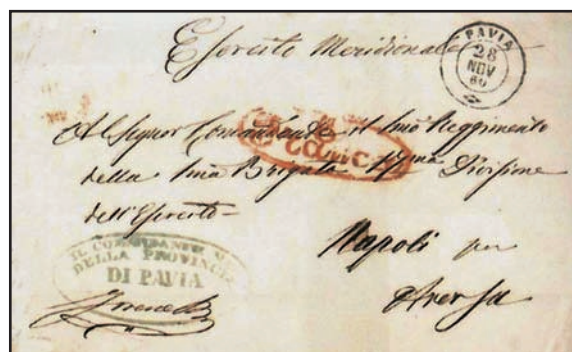 Esercito Meridionale
PAVIA
28
NOV
60
Al Signor Comandante il Imo Reggimento
della Ima Brigata 17ma Divisione
dell'Esercito
Napoli per
Aversa
IL COMANDANTE M
DELLA PROVINCIA
DI PAVIA